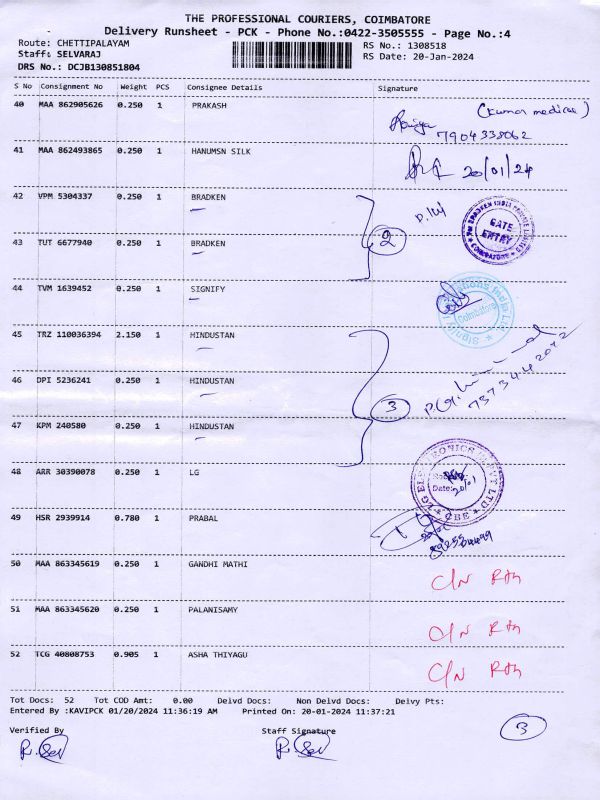 THE PROFESSIONAL COURIERS, COIMBATORE
Delivery Runsheet - PCK - Phone No.:0422-3505555 - Page No.:4
Route: CHETTIPALAYAM
RS No.: 1308518
Staff: SELVARAJ
RS Date: 20-Jan-2024
DRS No.: DCJB130851804
S No Consignment No Weight PCS Consignee Details Signature
40 MAA 862905626 0.250 1 PRAKASH
(Kumar medical)
7904338062
41 MAA 862493865 0.250 1 HANUMSN SILK
20/01/24
42 VPM 5304337 0.250 1 BRADKEN
GATE ENTRY
2
43 TUT 6677940 0.250 1 BRADKEN
44 TVM 1639452 0.250 1 SIGNIFY
Coimbatore
45 TRZ 110036394 2.150 1 HINDUSTAN
46 DPI 5236241 0.250 1 HINDUSTAN
3
47 KPM 240580 0.250 1 HINDUSTAN
48 ARR 30390078 0.250 1 LG
Date:
CBE
49 HSR 2939914 0.780 1 PRABAL
50 MAA 863345619 0.250 1 GANDHI MATHI
C/N
51 MAA 863345620 0.250 1 PALANISAMY
C/N
52 TCG 40808753 0.905 1 ASHA THIYAGU
C/N
Tot Docs: 52 Tot COD Amt: 0.00 Delvd Docs: Non Delvd Docs: Delvy Pts:
Entered By :KAVIPCK 01/20/2024 11:36:19 AM Printed On: 20-01-2024 11:37:21
3
Verified By Staff Signature